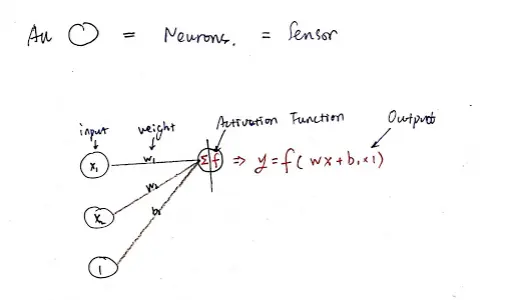 An O = Neurons. = Sensor
input weight Activation Function Output
x₁ w₁ Σ f ⇒ y = f( wx + b₁ × 1 )
x₂ w₂
1 b₁